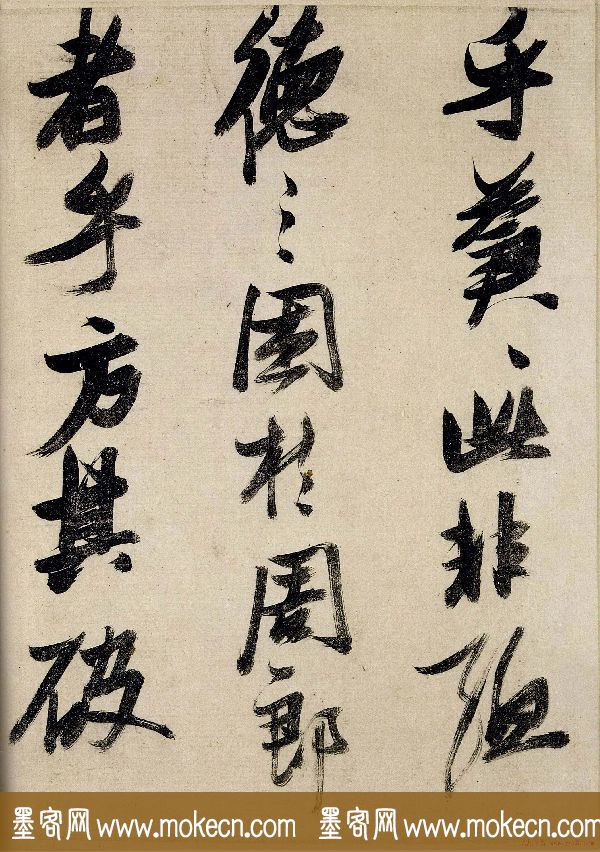 乎蒼々此非孟
德之困於周郎
者乎方其破
墨客网 www.mokecn.com 墨客网 www.mokecn.com